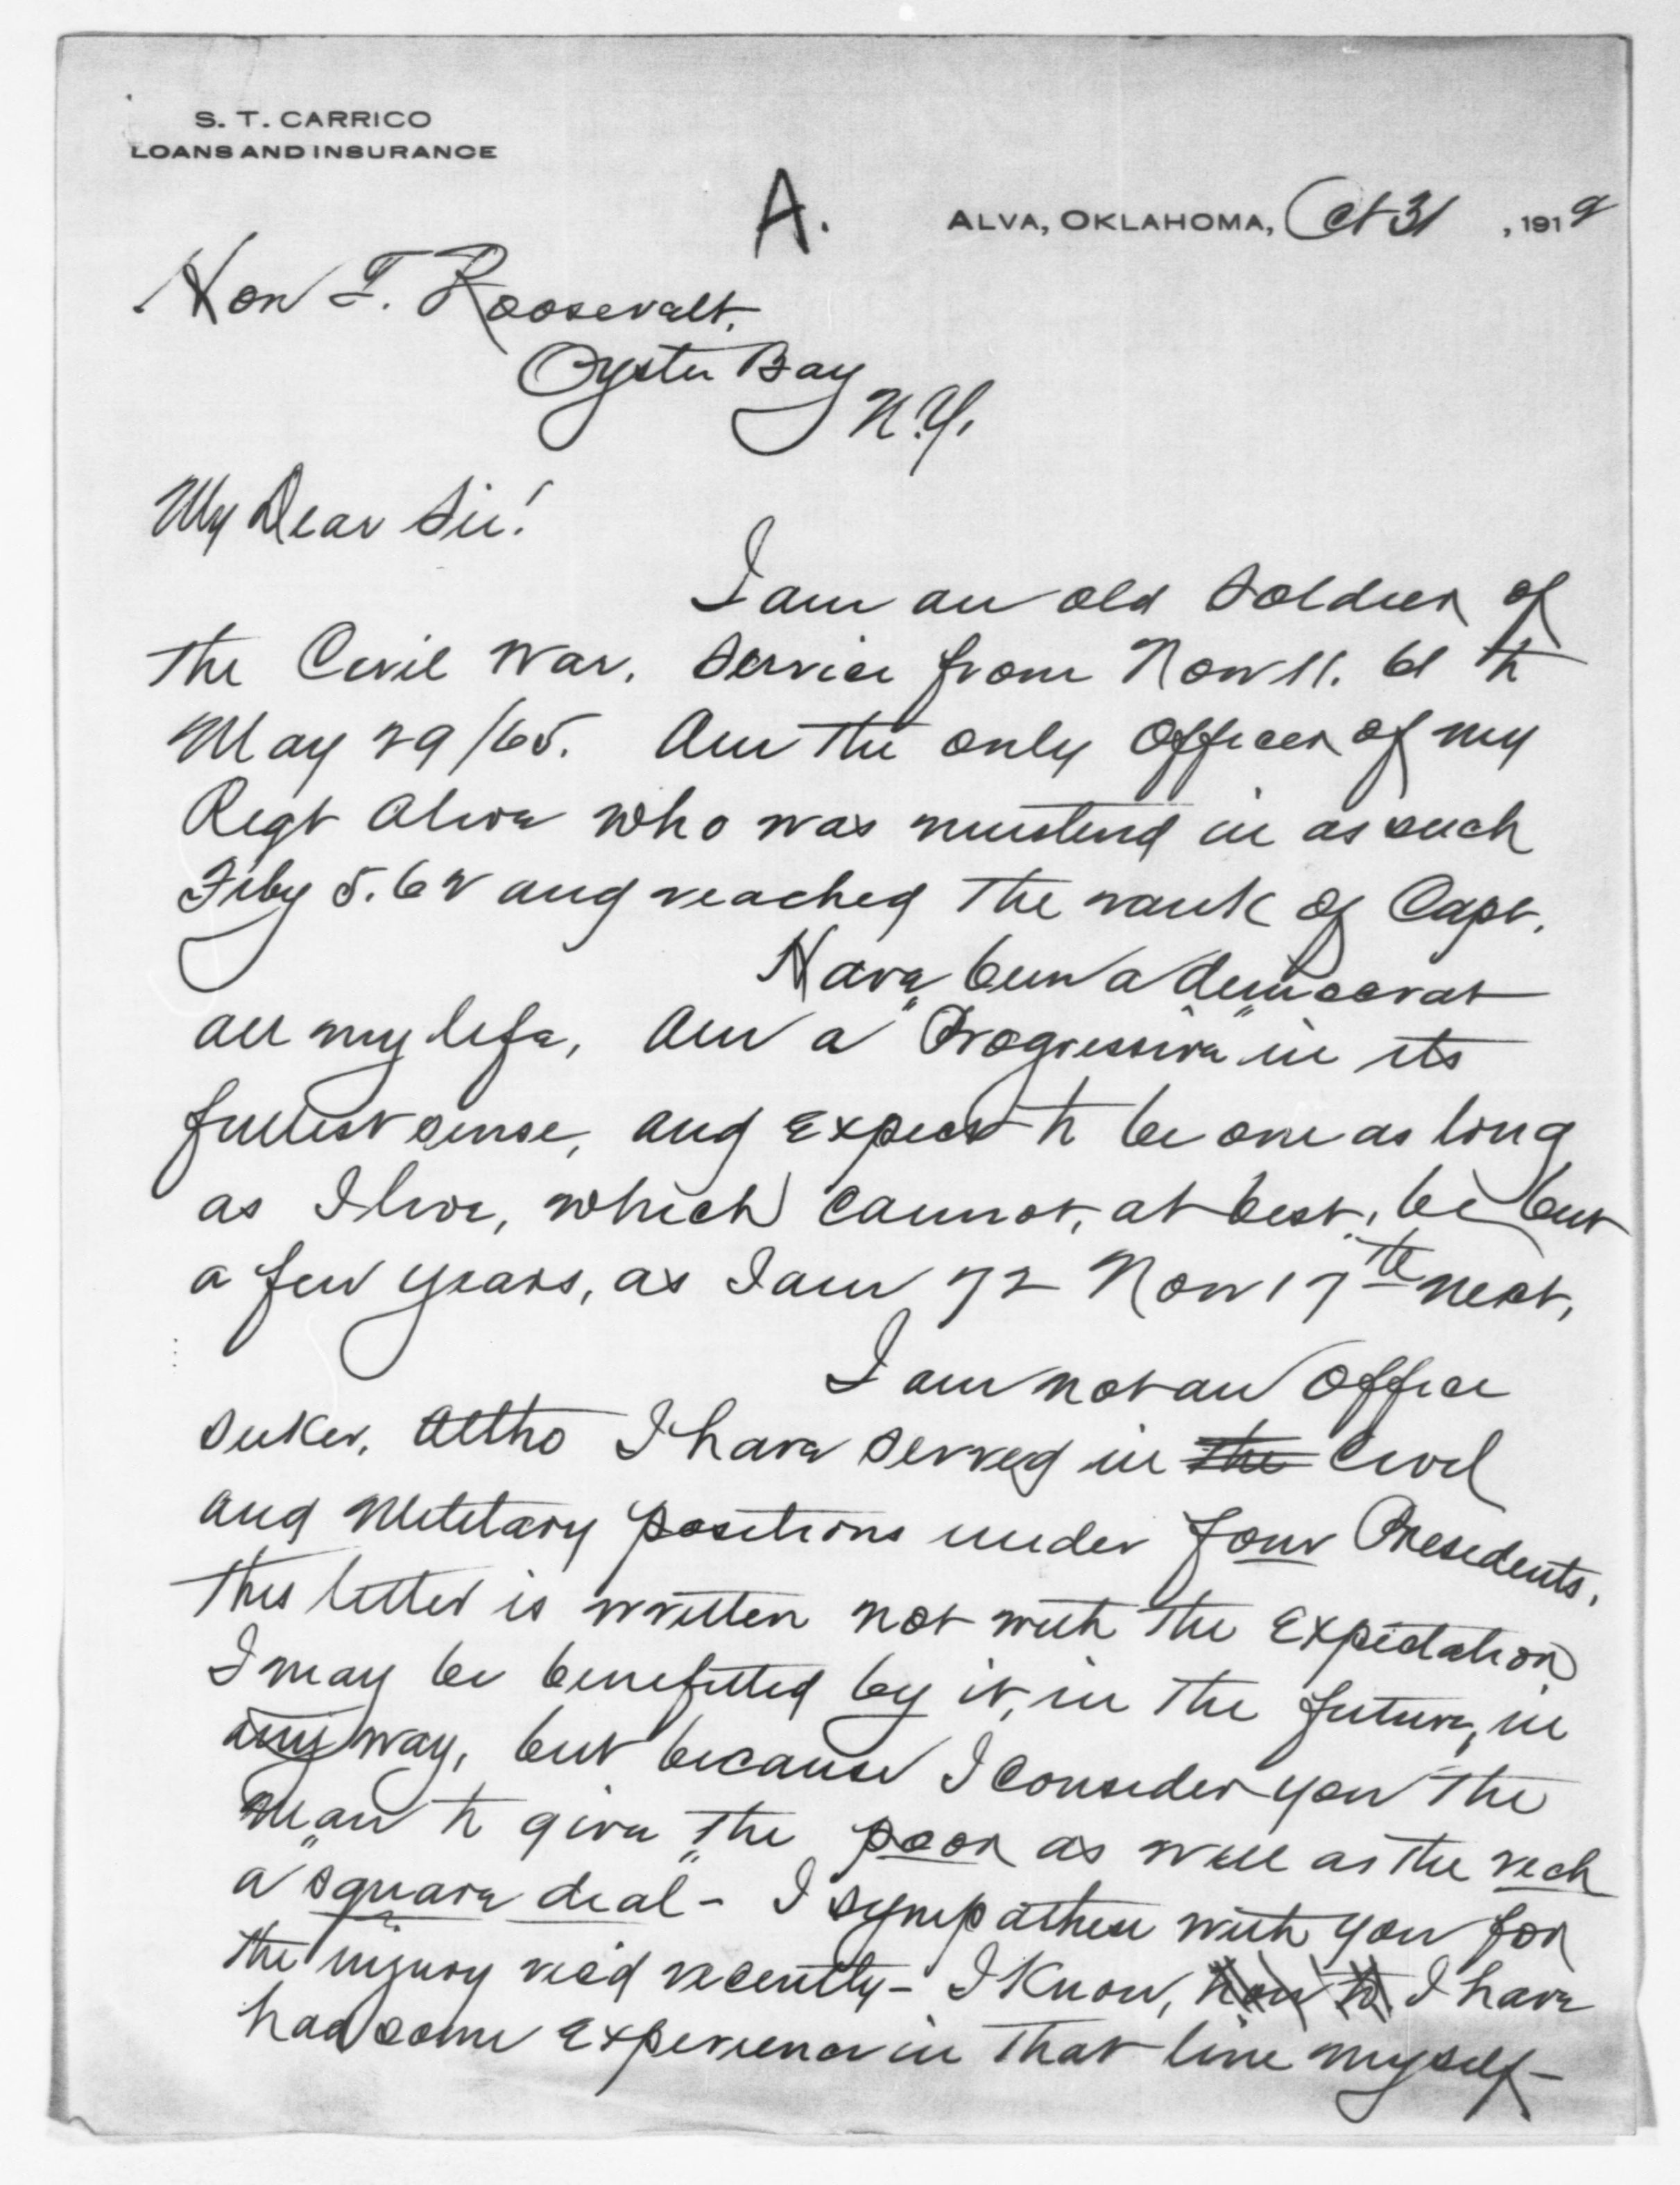 S. T. CARRICO
LOANS AND INSURANCE
A.
ALVA, OKLAHOMA, Oct 31, 1912
Hon T. Roosevelt.
Oyster Bay
N.Y.
My Dear Sir!
I am an old Soldier of
the Civil War. Service from Nov 11. 61 to
May 29/65. Am the only Officer of my
Regt alive who was mustered in as such
Feby 5. 62 and reached the rank of Capt.
Have been a democrat
all my life, Am a "Progressive" in its
fullest sense, and Expect to be one as long
as I live, which cannot, at best, be but
a few years, as I am 72 Nov 17th next,
I am not an Office
seeker, altho I have served in the Civil
and Military positions under four Presidents.
This letter is written not with the Expectation
I may be benefitted by it, in the future, in
any way, but because I consider you the
man to give the poor as well as the rich
a "square deal" - I sympathize with you for
the injury rec'd recently - I Know, how to I have
had some Experience in that line myself -